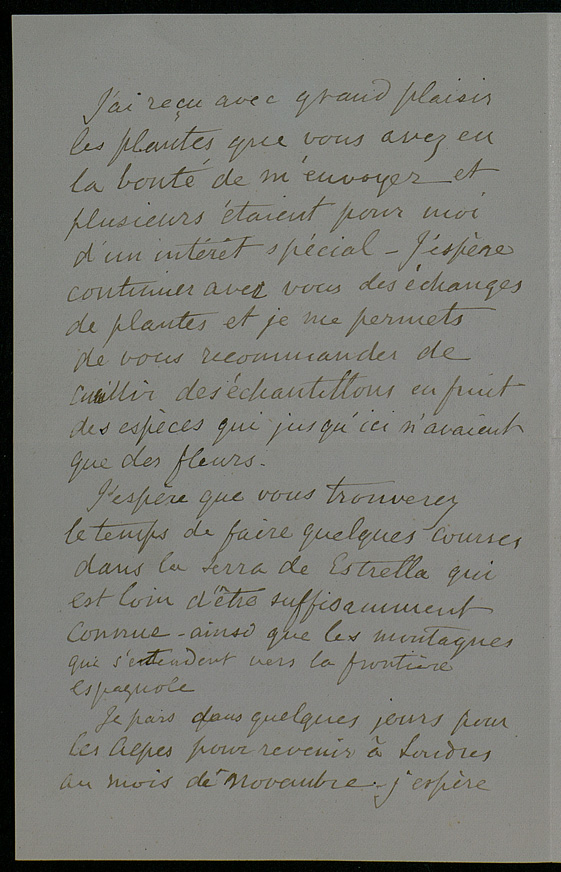 J'ai reçu avec grand plaisir
les plantes que vous avez eu
la bonté de m'envoyer et
plusieurs étaient pour moi
d'un intérêt spécial - J'espère
continuer avec vous des échanges
de plantes et je me permets
de vous recommander de
cueillir des échantillons en fruit
des espèces qui jusqu'ici n'avaient
que des fleurs.
J'espère que vous trouverez
le temps de faire quelques courses
dans la Serra de Estrella qui
est loin d'être suffisamment
connue - ainsi que les montagnes
qui s'etendent vers la frontière
espagnole
Je pars dans quelques jours pour
les Alpes pour revenir à Londres
au mois de Novembre - j'espère